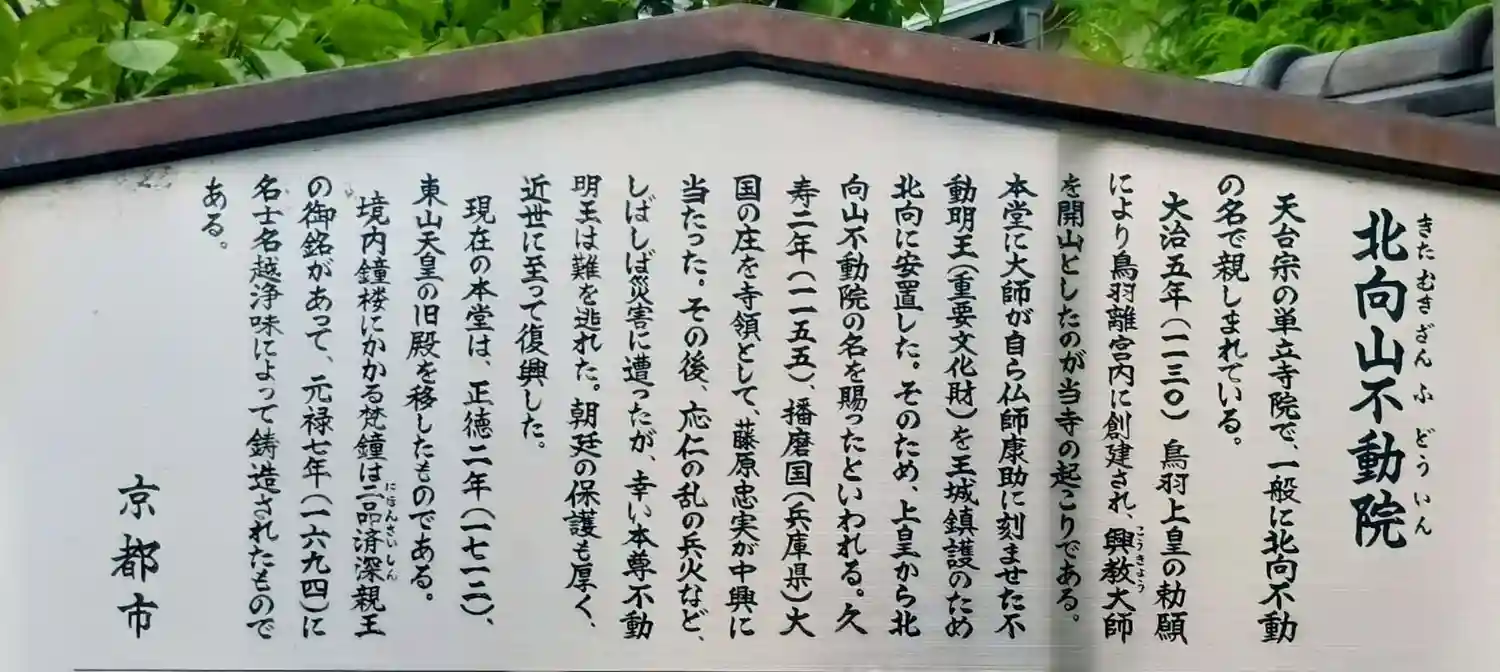 北向山不動院
きたむきざんふどういん
天台宗の単立寺院で、一般に北向不動
の名で親しまれている。
大治五年(一一三〇)鳥羽上皇の勅願
により鳥羽離宮内に創建され、興教大師
こうきょう
を開山としたのが当寺の起こりである。
本堂に大師が自ら仏師康助に刻ませた不
動明王(重要文化財)を王城鎮護のため
北向に安置した。そのため、上皇から北
向山不動院の名を賜ったといわれる。久
寿二年(一一五五)、播磨国(兵庫県)大
国の庄を寺領として、藤原忠実が中興に
当たった。その後、応仁の乱の兵火など、
しばしば災害に遭ったが、幸い本尊不動
明王は難を逃れた。朝廷の保護も厚く、
近世に至って復興した。
現在の本堂は、正徳二年(一七一二)、
東山天皇の旧殿を移したものである。
境内鐘楼にかかる梵鐘は二品済深親王
にほんさいしん
の御銘があって、元禄七年(一六九四)に
名士名越浄味によって鋳造されたもので
ある。
京都市